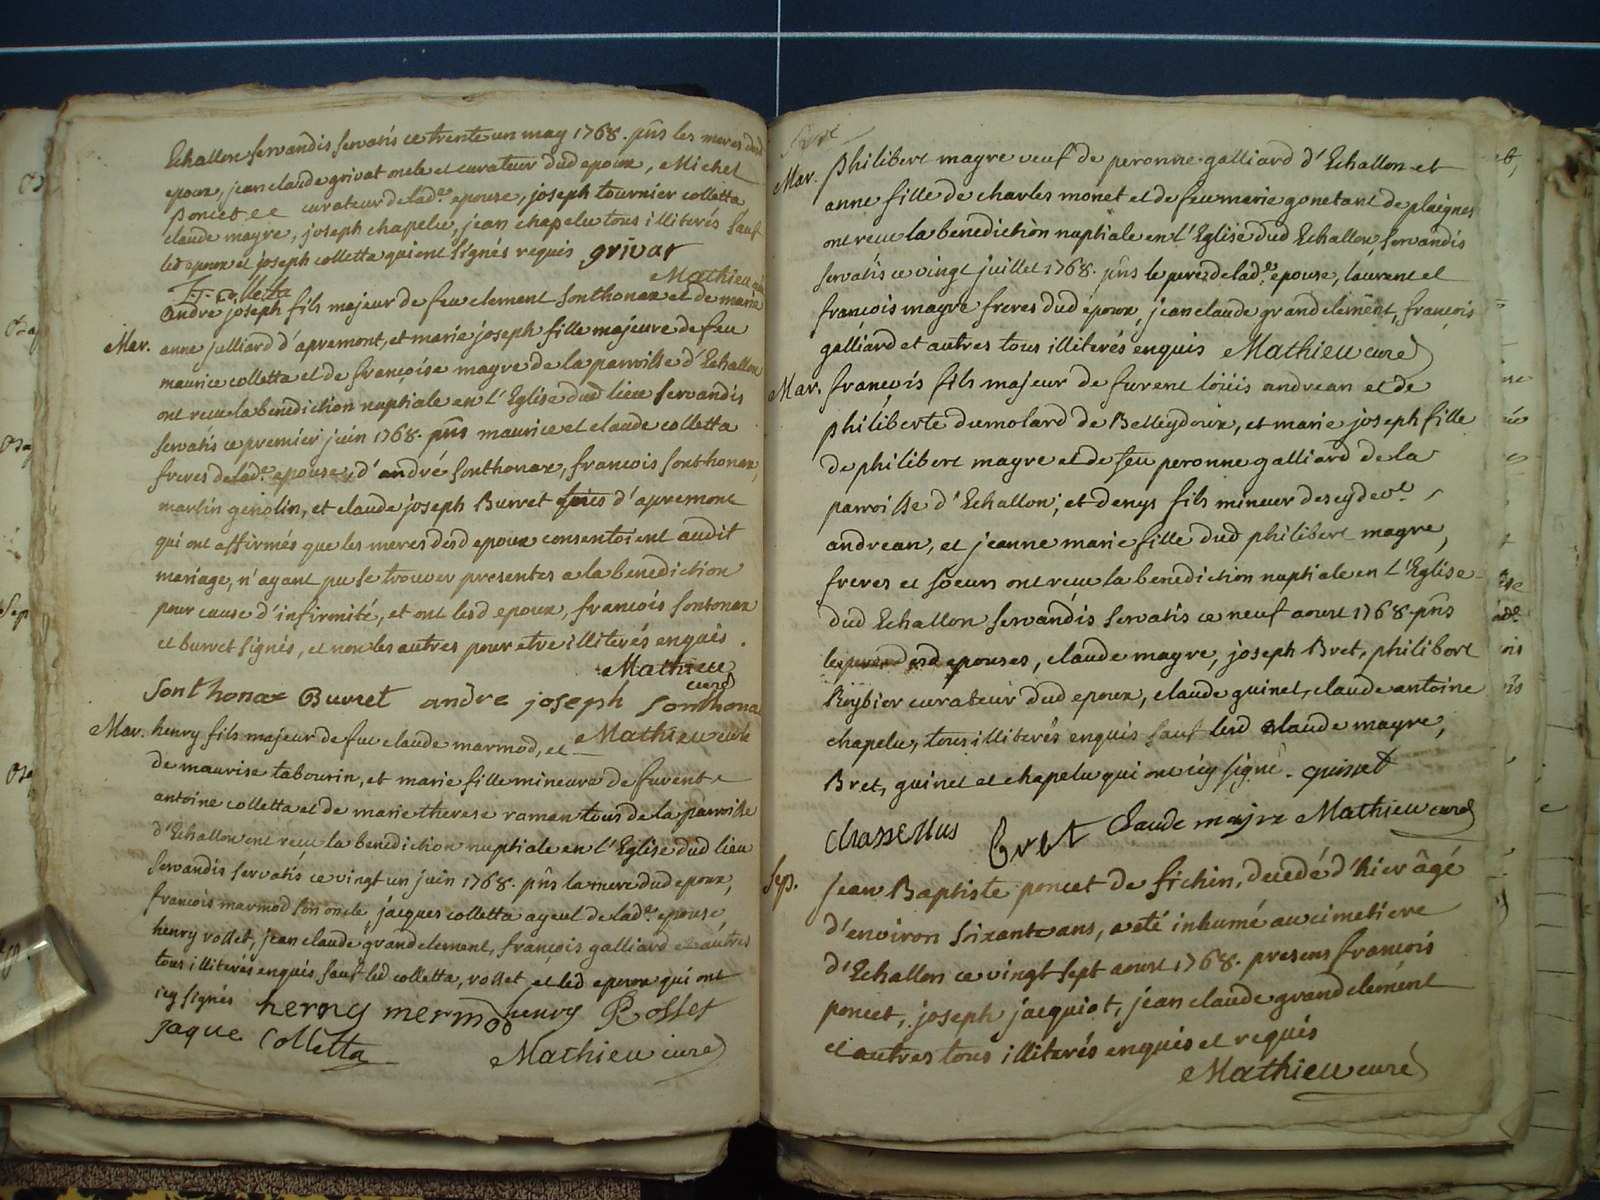 Echallon servandis servatis ce trente un may 1768. pñs les meres dud
epoux, jean claude grivat oncle et curateur dud epoux, Michel
poncet curateur de lad.e epouse, joseph tournier colletta
claude mayre, joseph chapelu, jean chapelu tous illiterés sauf
led epoux et joseph colletta qui ont signés requis grivat
J. colletta Mathieu
André joseph fils majeur de feu clement sonthonax et de marie
Mar. anne julliard d'apremont, et marie joseph fille majeure de feu
maurice colletta et de françoise mayre de la parroisse d'Echallon
ont recu la benediction nuptiale en L'Eglise dud lieu servandis
servatis ce premier juin 1768. pñs maurice et claude colletta
freres de lad.e epouse, d'andré sonthonax, françois sonthonax,
martin genolin, et claude joseph Burret d'apremont
qui ont affirmés que les meres desd epoux consentoient audit
mariage, n'ayant pu se trouver presentes a la benediction
pour cause d'infirmité, et ont lesd epoux, francois sontonax
et burret signés, et non les autres pour etre illiterés enquis.
Mathieu
curé
sonthonax Burret andre joseph sonthona
Mathieu curé
Mar. henry fils majeur de fu claude marmod, et
de maurise tabourin, et marie fille mineure de furent
antoine colletta et de marie therese raman tous de la parroisse
d'Echallon ont recu la benediction nuptiale en l'Eglise dud lieu
servandis servatis ce vingt un juin 1768. pñs la mere dud epoux,
francois marmod son oncle, jacques colletta ayeul de lad.e epouse
henry rollet, jean claude grandclement, françois galliard et autres
tous illiterés enquis, sauf led colletta, rollet et led epoux qui ont
icy signés herny mermod henry Rosset
jaque Colletta Mathieu curé
Mar. philibert mayre veuf de peronne galliard d'Echallon et
anne fille de charles monet et de feu marie gonetant de plaignes
ont recu la benediction nuptiale en L'Eglise dud Echallon servandis
servatis ce vingt juillet 1768. pñs le pere de lad.e epouse, laurent et
françois mayre freres dud epoux, jean claude grandclement, françois
galliard et autres tous illiterés enquis Mathieu curé
Mar. françois fils majeur de furent loüis andrean et de
philiberte dumolard de Belleydoux, et marie joseph fille
de philibert mayre et de feu peronne galliard de la
parroisse d'Echallon; et denys fils mineur
andrean, et jeanne marie fille dud philibert mayre,
freres et soeurs ont recu la benediction nuptiale en L'Eglise
dud Echallon servandis servatis ce neuf aoust 1768. pñs
le pere desd epouses, claude mayre, joseph Bret, philibert
Reybier curateur dud epoux, claude guinet, claude antoine
chapelu, tous illiterés enquis sauf lesd claude mayre,
Bret, guinet et chapelu qui ont icy signé. guinet
Bret Claude mayre Mathieu curé
Sep. Jean Baptiste poncet de sichin, decedé d'hier âgé
d'environ soixante ans, a eté inhumé au cimetiere
d'Echallon ce vingt sept aoust 1768. presens françois
poncet, joseph jacquiot, jean claude grandclement
et autres tous illiterés enquis et requis
Mathieu curé